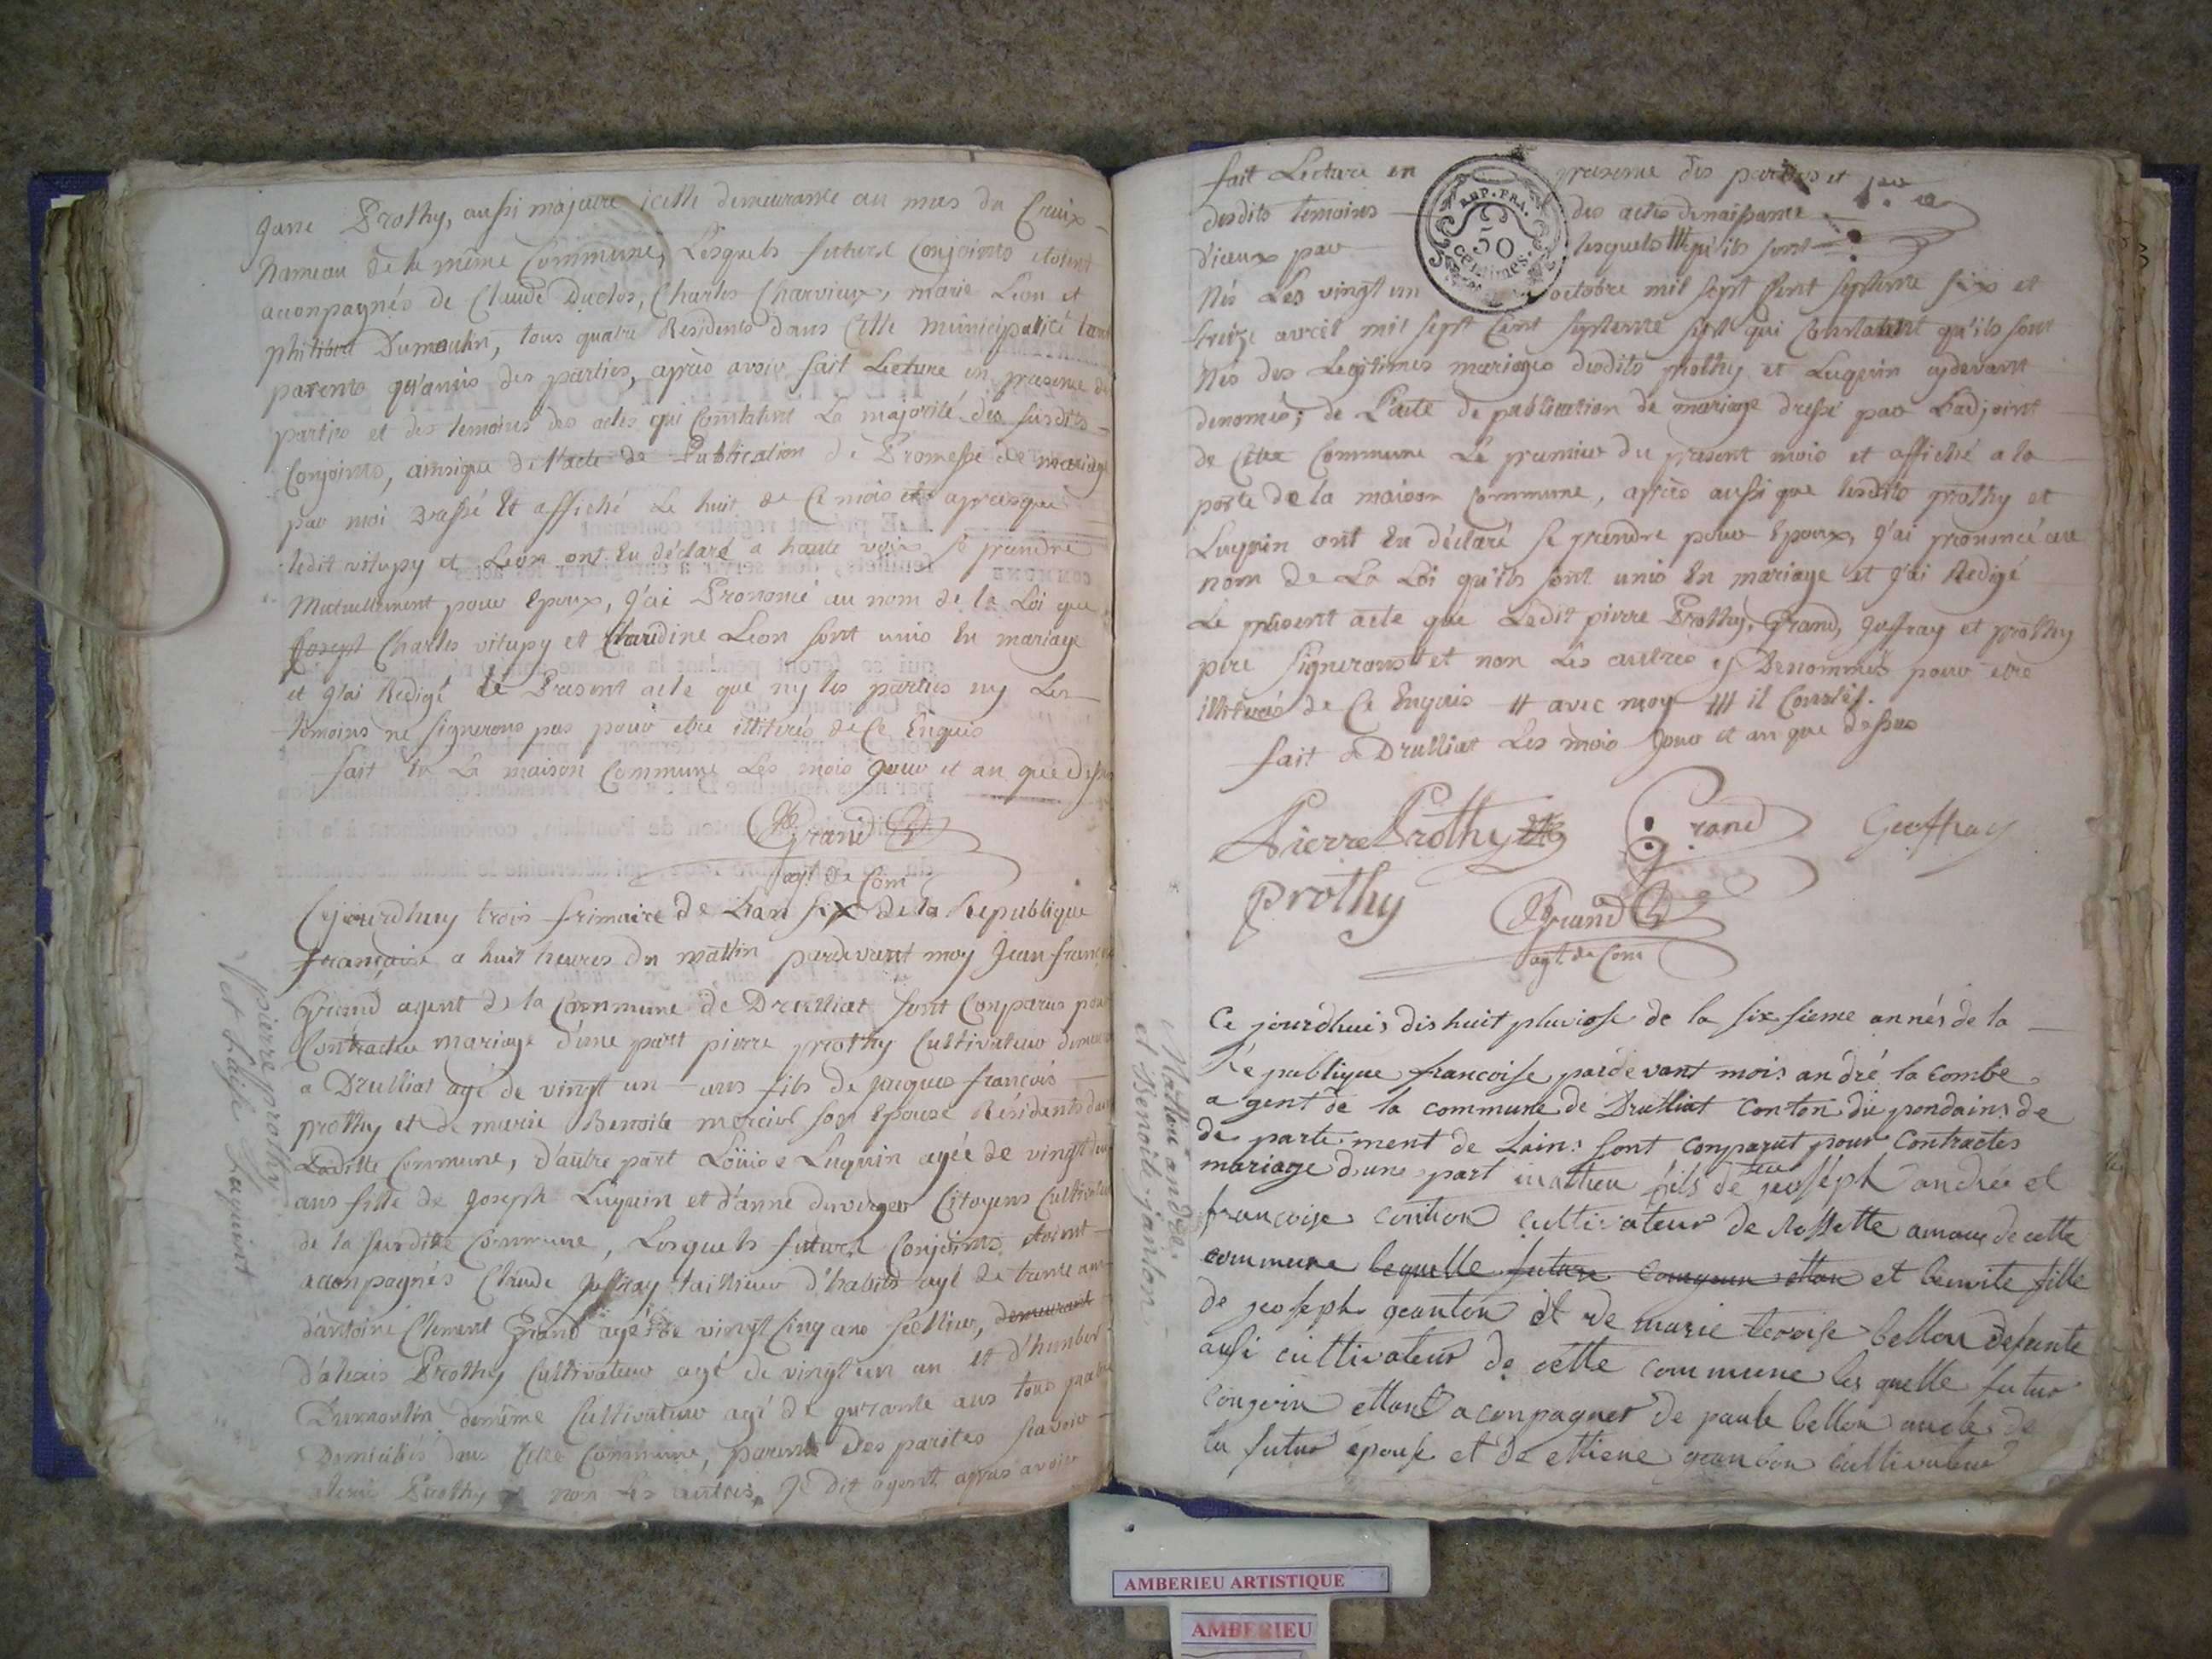 Jane Prothy, aussi majeure icelle demeurante au mas du Cruix
hameau de la même Commune, Lesquels futurs Conjoints etoient
acompagnés de Claude Duclos, Charles Charvieux, marie Leon et
philibert Dumoulin, tous quatre Residents dans Cette municipalité tant
parents qu'amis des parties, après avoir fait Lecture en presence des
parties et des temoins des actes qui Constatent La majorité des susdits
Conjoints, ainsique de l'acte de Publication de Promesse de mariage
par moi Dressé Et affiché Le huit de Ce mois et apresque
ledit vitupy et Leon ont Eu déclaré a haute voix se prendre
Mutuellement pour Epoux, J'ai Prononcé au nom de la Loi que
Joseph Charles vitupy et Claudine Leon sont unis En mariage
et J'ai Redigé le Present acte que ny les parties ny Les
temoins ne signerons pas pour etre illiterés de Ce Enquis
fait En La maison Commune Les mois Jour et an que Dessus
Grand
agt. de Com
Cejourdhuy trois frimaire de Lan six de la Republique
française a huit heures du mattin pardevant moy Jean françois
Grand agent de la Commune de Druilliat sont Comparus pour
Contracter mariage d'une part pierre prothy Cultivateur
a Drulliat agé de vingt un ans fils de Jacques françois
prothy et de marie Benoite mercier son Epouse Résidents dans
Laditte Commune, d'autre part Loüise Luquin agée de vingt
ans fille de Joseph Luquin et d'anne duverger Citoyens Cultivateurs
de la susditte Commune, Lesquels futurs Conjoints etoient
acompagnés Claude Joffray taillieur d'habits agé de trente ans
d'antoine Clement Grand agé de vingt Cinq ans sellier, demeurant
d'alexis Prothy Cultivateur agé de vingt un an et d'humbert
Dumoulin demême Cultivateur agé de qurante ans tous quatre
Domiciliés dans Cette Commune, parents des parties scavoir
alexis Prothy et non les autres, Je dit agent apres avoir
pierre prothy
et Luise Luquint
fait Lecture en presence des parties et
desdits temoins des actes denaissance
d'iceux par lesquels # qu'ils sont
Nés Les vingt un octobre mil sept Cent septente six et
treize avril mil sept Cent septente sept qui Constatent qu'ils sont
Nés des Legitimes mariages desdits prothy et Luquin cydevant
denomés; de L'acte de publication de mariage dressé par Ladjoint
de Cette Commune Le premier du present mois et affiché a la
porte de la maison Commune, après aussi que lesdits prothy et
Luquin ont Eu déclaré se prendre pour Epoux, J'ai prononcé au
nom de La Loi qu'ils sont unis En mariage et J'ai Redigé
Le present acte que Ledit pierre Prothy, Grand, Joffray et prothy
pere signerons et non Les autres y Denommés pour etre
illiterés de Ce Enquis # avec moy # il Conste.
fait a Drulliat Les mois Jour et an que dessus
REP. FRA.
50
centimes.
Pierre Prothy Grand Geoffray
prothy Grand
agt. de Com
Ce jourdhuis dishuit pluviose de la sixsieme année de la
République francoise pardevant mois andré la combe
agent de la commune de Drulliat conton du pondains de
departement de Lain: sont comparut pour contractes
mariage dune part mattieu fils de feu joseph andrée et
francoise cultivateur de Rossette amaux de cette
commune lequelle future conjoin ettan et benoite fille
de joseph geanton et de marie teroise bellou defunte
ausi cultivateur de cette commune les quelle futur
conjoin ettant aconpagner de paule bellou oncle de
la futur epouse et de ettiene geanton cultivateur
Mattieu andrée
et Benoite janton
AMBERIEU ARTISTIQUE
AMBERIEU